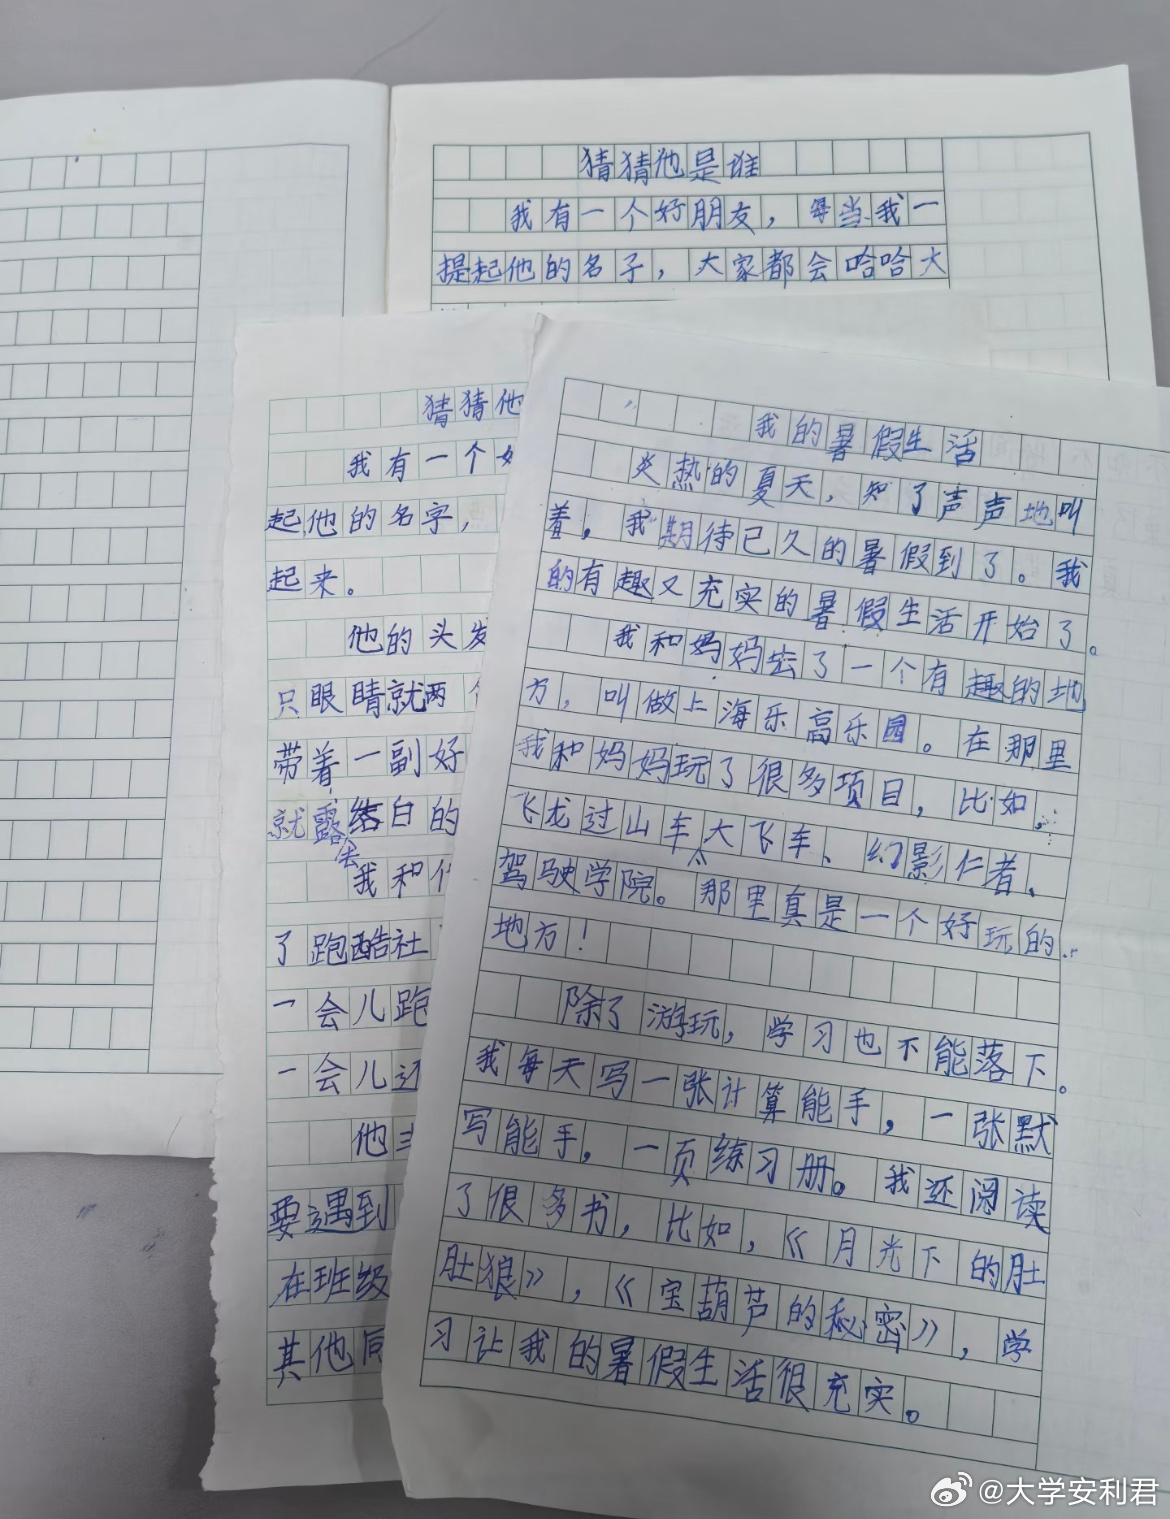 猜猜他是谁
我有一个好朋友，每当我一
提起他的名子，大家都会哈哈大
猜猜他
我有一个
起他的名字，
起来。
他的头发
只眼睛就两
带着一副好
就露结白的
去
我和
了跑酷社
一会儿跑
一会儿
他
要遇到
在班级
其他同
我的暑假生活
炎热的夏天，知了声声地叫
着。我期待已久的暑假到了。我
的有趣又充实的暑假生活开始了。
我和妈妈去了一个有趣的地
方，叫做上海乐高乐园。在那里
我和妈妈玩了很多项目，比如，
飞龙过山车大飞车、幻影仁者、
驾驶学院。那里真是一个好玩的
地方！
除了游玩，学习也不能落下。
我每天写一张计算能手，一张默
写能手，一页练习册。我还阅读
了很多书，比如，《月光下的肚
肚狼》，《宝葫芦的秘密》，学
习让我的暑假生活很充实。
@大学安利君